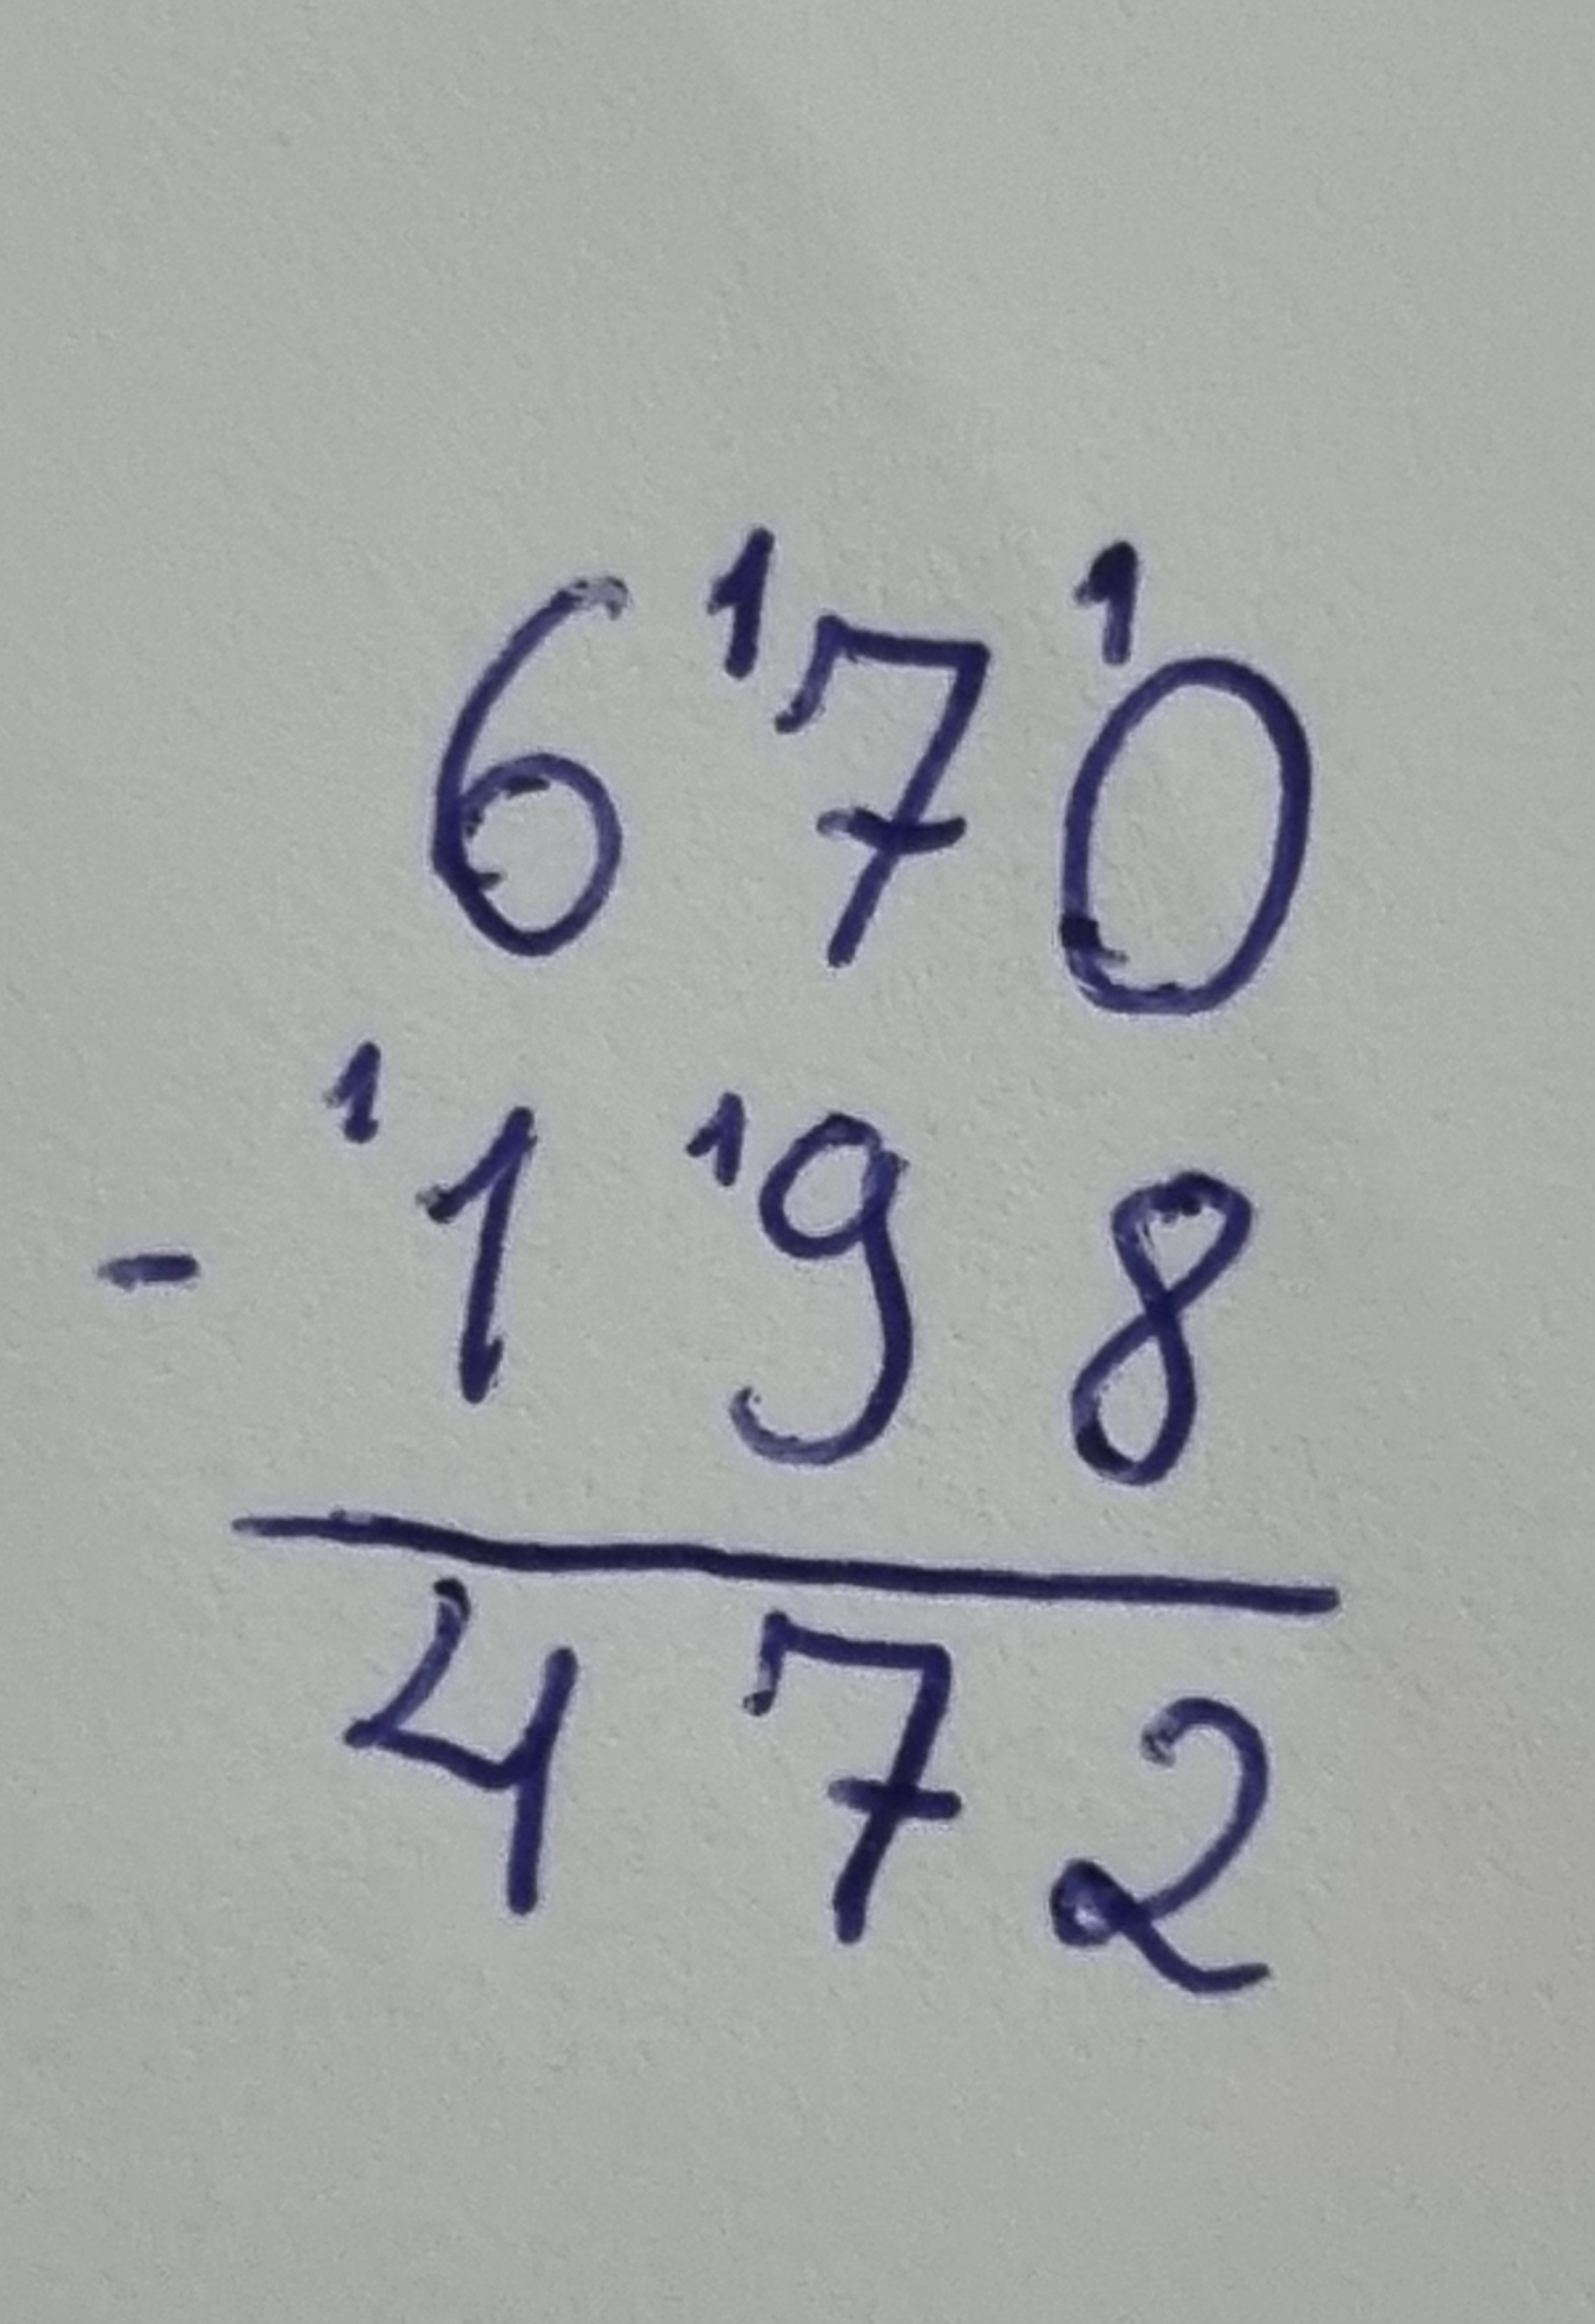 6 ¹7 ¹0
- ¹1 ¹9 8
4 7 2